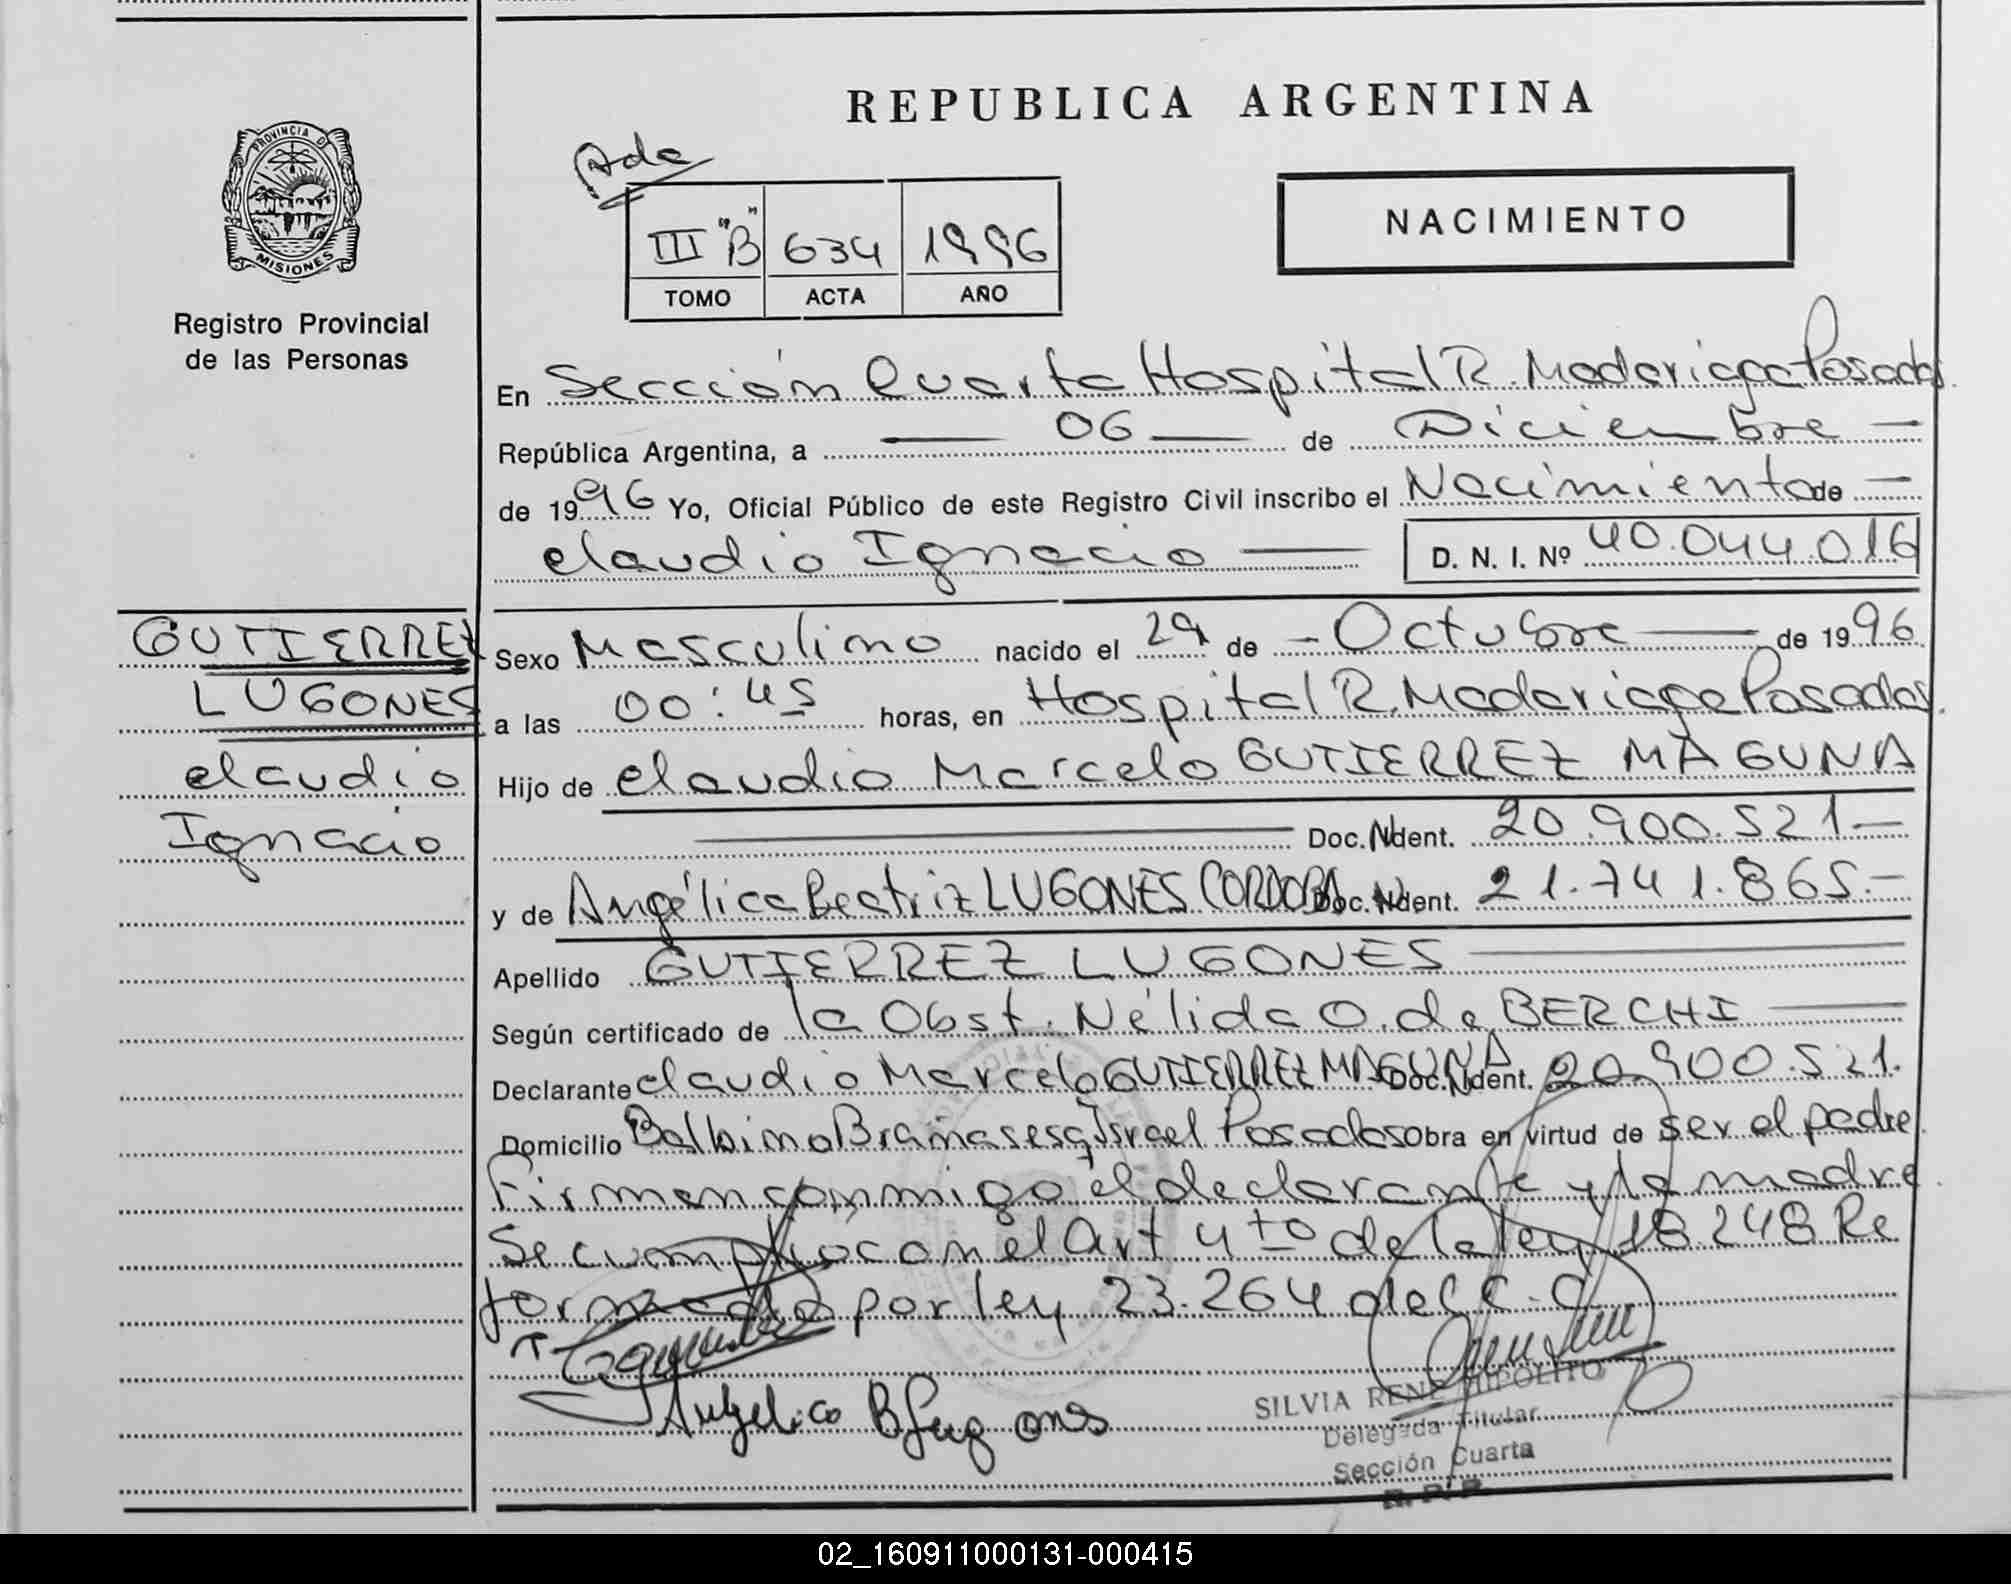 REPUBLICA ARGENTINA
PROVINCIA D
MISIONES
Registro Provincial
de las Personas
Ada
III "B" 634 1996
TOMO ACTA AÑO
NACIMIENTO
En Sección Cuarta Hospital R. Madariaga Posadas
República Argentina, a 06 de Diciembre
de 1996 Yo, Oficial Público de este Registro Civil inscribo el Nacimiento de
Claudio Ignacio D. N. I. Nº 40.044.016
GUTIERREZ
LUGONES
Claudio
Ignacio
Sexo Masculino nacido el 29 de Octubre de 1996
a las 00:45 horas, en Hospital R. Madariaga Posadas.
Hijo de Claudio Marcelo GUTIERREZ MAGUNA
Doc. Ident. 20.900.521.-
y de Angélica Beatriz LUGONES CORDOBA Doc. Ident. 21.741.865.-
Apellido GUTIERREZ LUGONES
Según certificado de la Obst. Nélida O. de BERCHI
Declarante Claudio Marcelo GUTIERREZ MAGUNA Doc. Ident. 20.900.521.
Domicilio Balbino Brañas esq Israel Posadas obra en virtud de ser el padre
Firman conmigo el declarante y la madre
Se cumplió con el Art 4to de la ley 18.248 Re
formada por ley 23.264 del C.C.
Angelica B Lugones
SILVIA RENE HIPOLITO
Delegada Titular
Sección Cuarta
R. P. P.
02_160911000131-000415